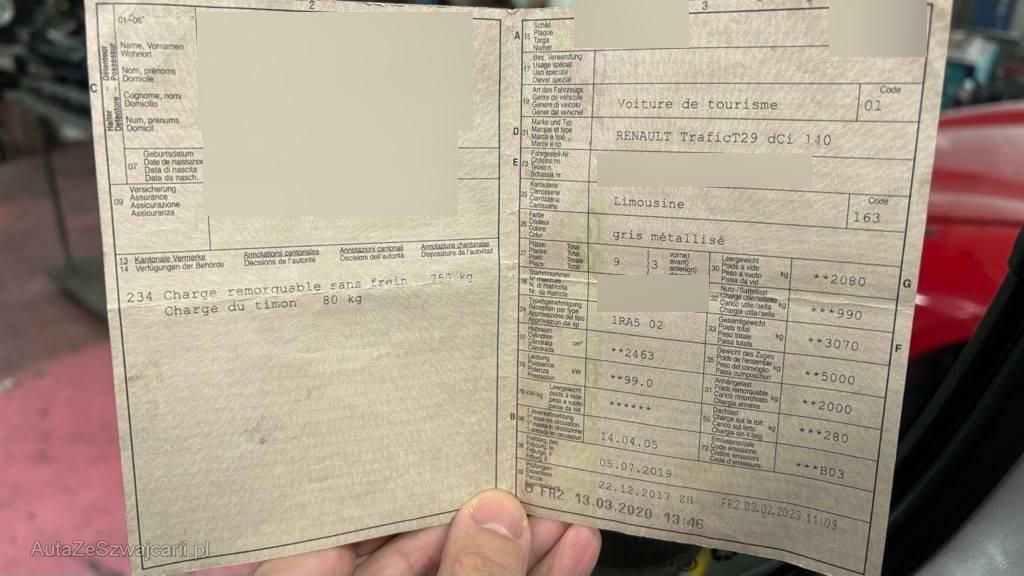 2
01-06
Détenteur
Possesseur
Halter
Detentore
C
Name, Vornamen
Wohnort
Nom, prénoms
Domicile
Cognome, nomi
Domicilio
Num, prenums
Domicil
07
Geburtsdatum
Date de naissance
Data di nascita
Data da nasch.
09
Versicherung
Assurance
Assicurazione
Assicuranza
13 Kantonale Vermerke Annotations cantonales Annotazioni cantonali Annotaziuns chantunalas
14 Verfügungen der Behörde Décisions de l'autorité Decisioni dell'autorità Disposiziuns da l'autoritad
234 Charge remorquable sans frein 750 kg
Charge du timon 80 kg
3
A
15
Schild
Plaque
Targa
Numer
17
Bes. Verwendung
Usage spécial
Uso speciale
Diever spezial
19
Art des Fahrzeugs
Genre de véhicule
Genere di veicolo
Gener dal vehichel
Voiture de tourisme
Code
01
D
21
Marke und Typ
Marque et type
Marca e tipo
Marca e tip
RENAULT TraficT29 dCi 140
E
23
Fahrgestell-Nr.
Châssis no
Telaio n.
Schassis nr.
25
Karosserie
Carrosserie
Carrozzeria
Carossaria
Limousine
Code
163
26
Farbe
Couleur
Colore
Colur
gris métallisé
27
Plätze: Total
Places: Total
Posti: Totale
Plazs: Total
9
(3
vorne)
avant)
anteriori)
30
Leergewicht
Poids à vide
Peso a vuoto
Paisa da vid
kg
**2080
G
18
Stammnummer
N° matricule
N. di matricola
Nr. da matricla
32
Nutz-/Sattellast
Charge utile/sellette
Carico utile/sella
Chargia utila/sella
***990
24
Typengenehmigung
Réception par type
Approvazione del tipo
Approvaziun dal tip
1RA5 02
33
Gesamtgewicht
Poids total
Peso totale
Paisa totala
kg
**3070
F
37
Hubraum
Cylindrée
Cilindrata
Cilindrada
cm³
**2463
35
Gewicht des Zuges
Poids de l'ensemble
Peso del convoglio
Paisa cumposiziun
kg
**5000
76
Leistung
Puissance
Potenza
Prestaziun
kW
**99.0
31
Anhängelast
Poids remorquable
Carico rimorchiato
Chargia annexa
kg
**2000
78 kW/kg
Leergewicht
poids à vide
peso a vuoto
paisa da vid
******
55
Dachlast
Charge sur le toit
Carico sul tetto
Chargia sin il tetg
kg
***280
B
36
1. Inverkehrsetzung
1re mise en circulation
14.04.05
72
Emissionscode
Code émissions
Codice emissioni
Code d'emissiuns
***B03
38
05.07.2019
39
Prüfungen
Expertises
22.12.2017 ZH
FR2 03.02.2023 11:09
FR2 13.03.2020 13:46
AutaZeSzwajcarii.pl